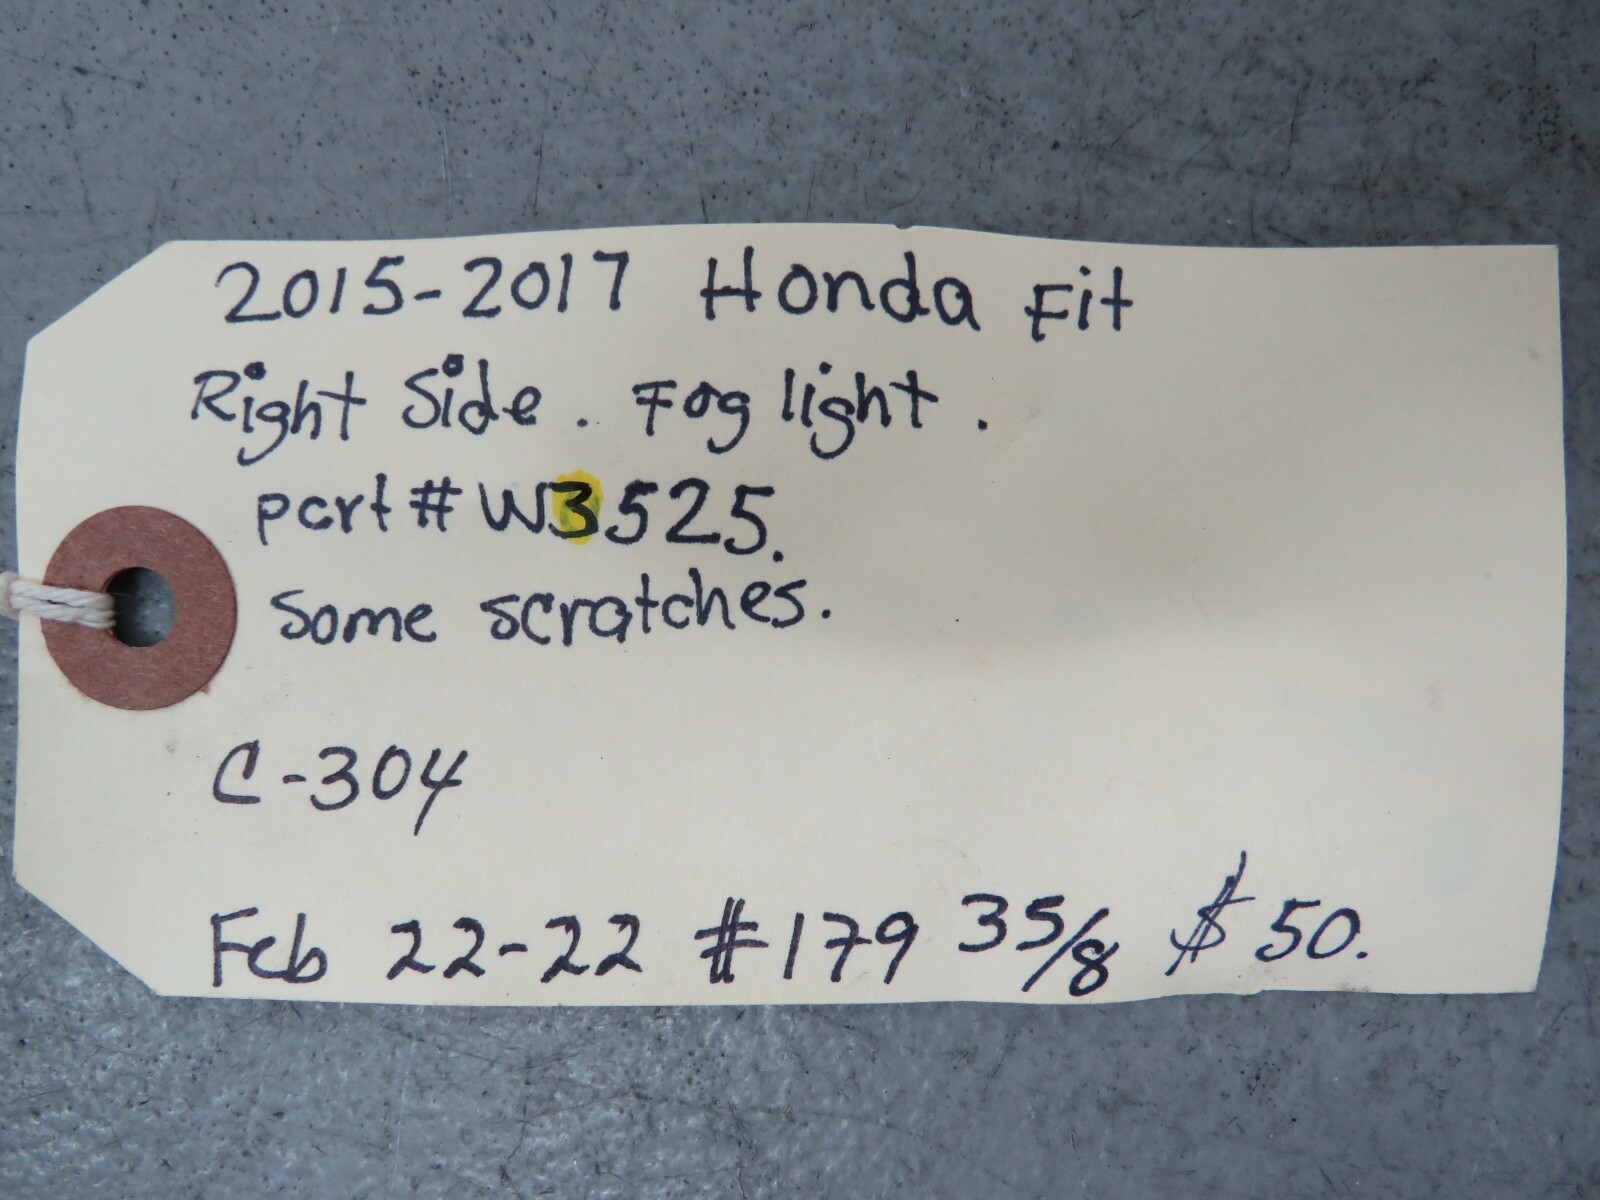 2015-2017 Honda Fit
Right Side. Fog light.
part # W3525.
Some scratches.
C-304
Feb 22-22 #179 35/8 $50.